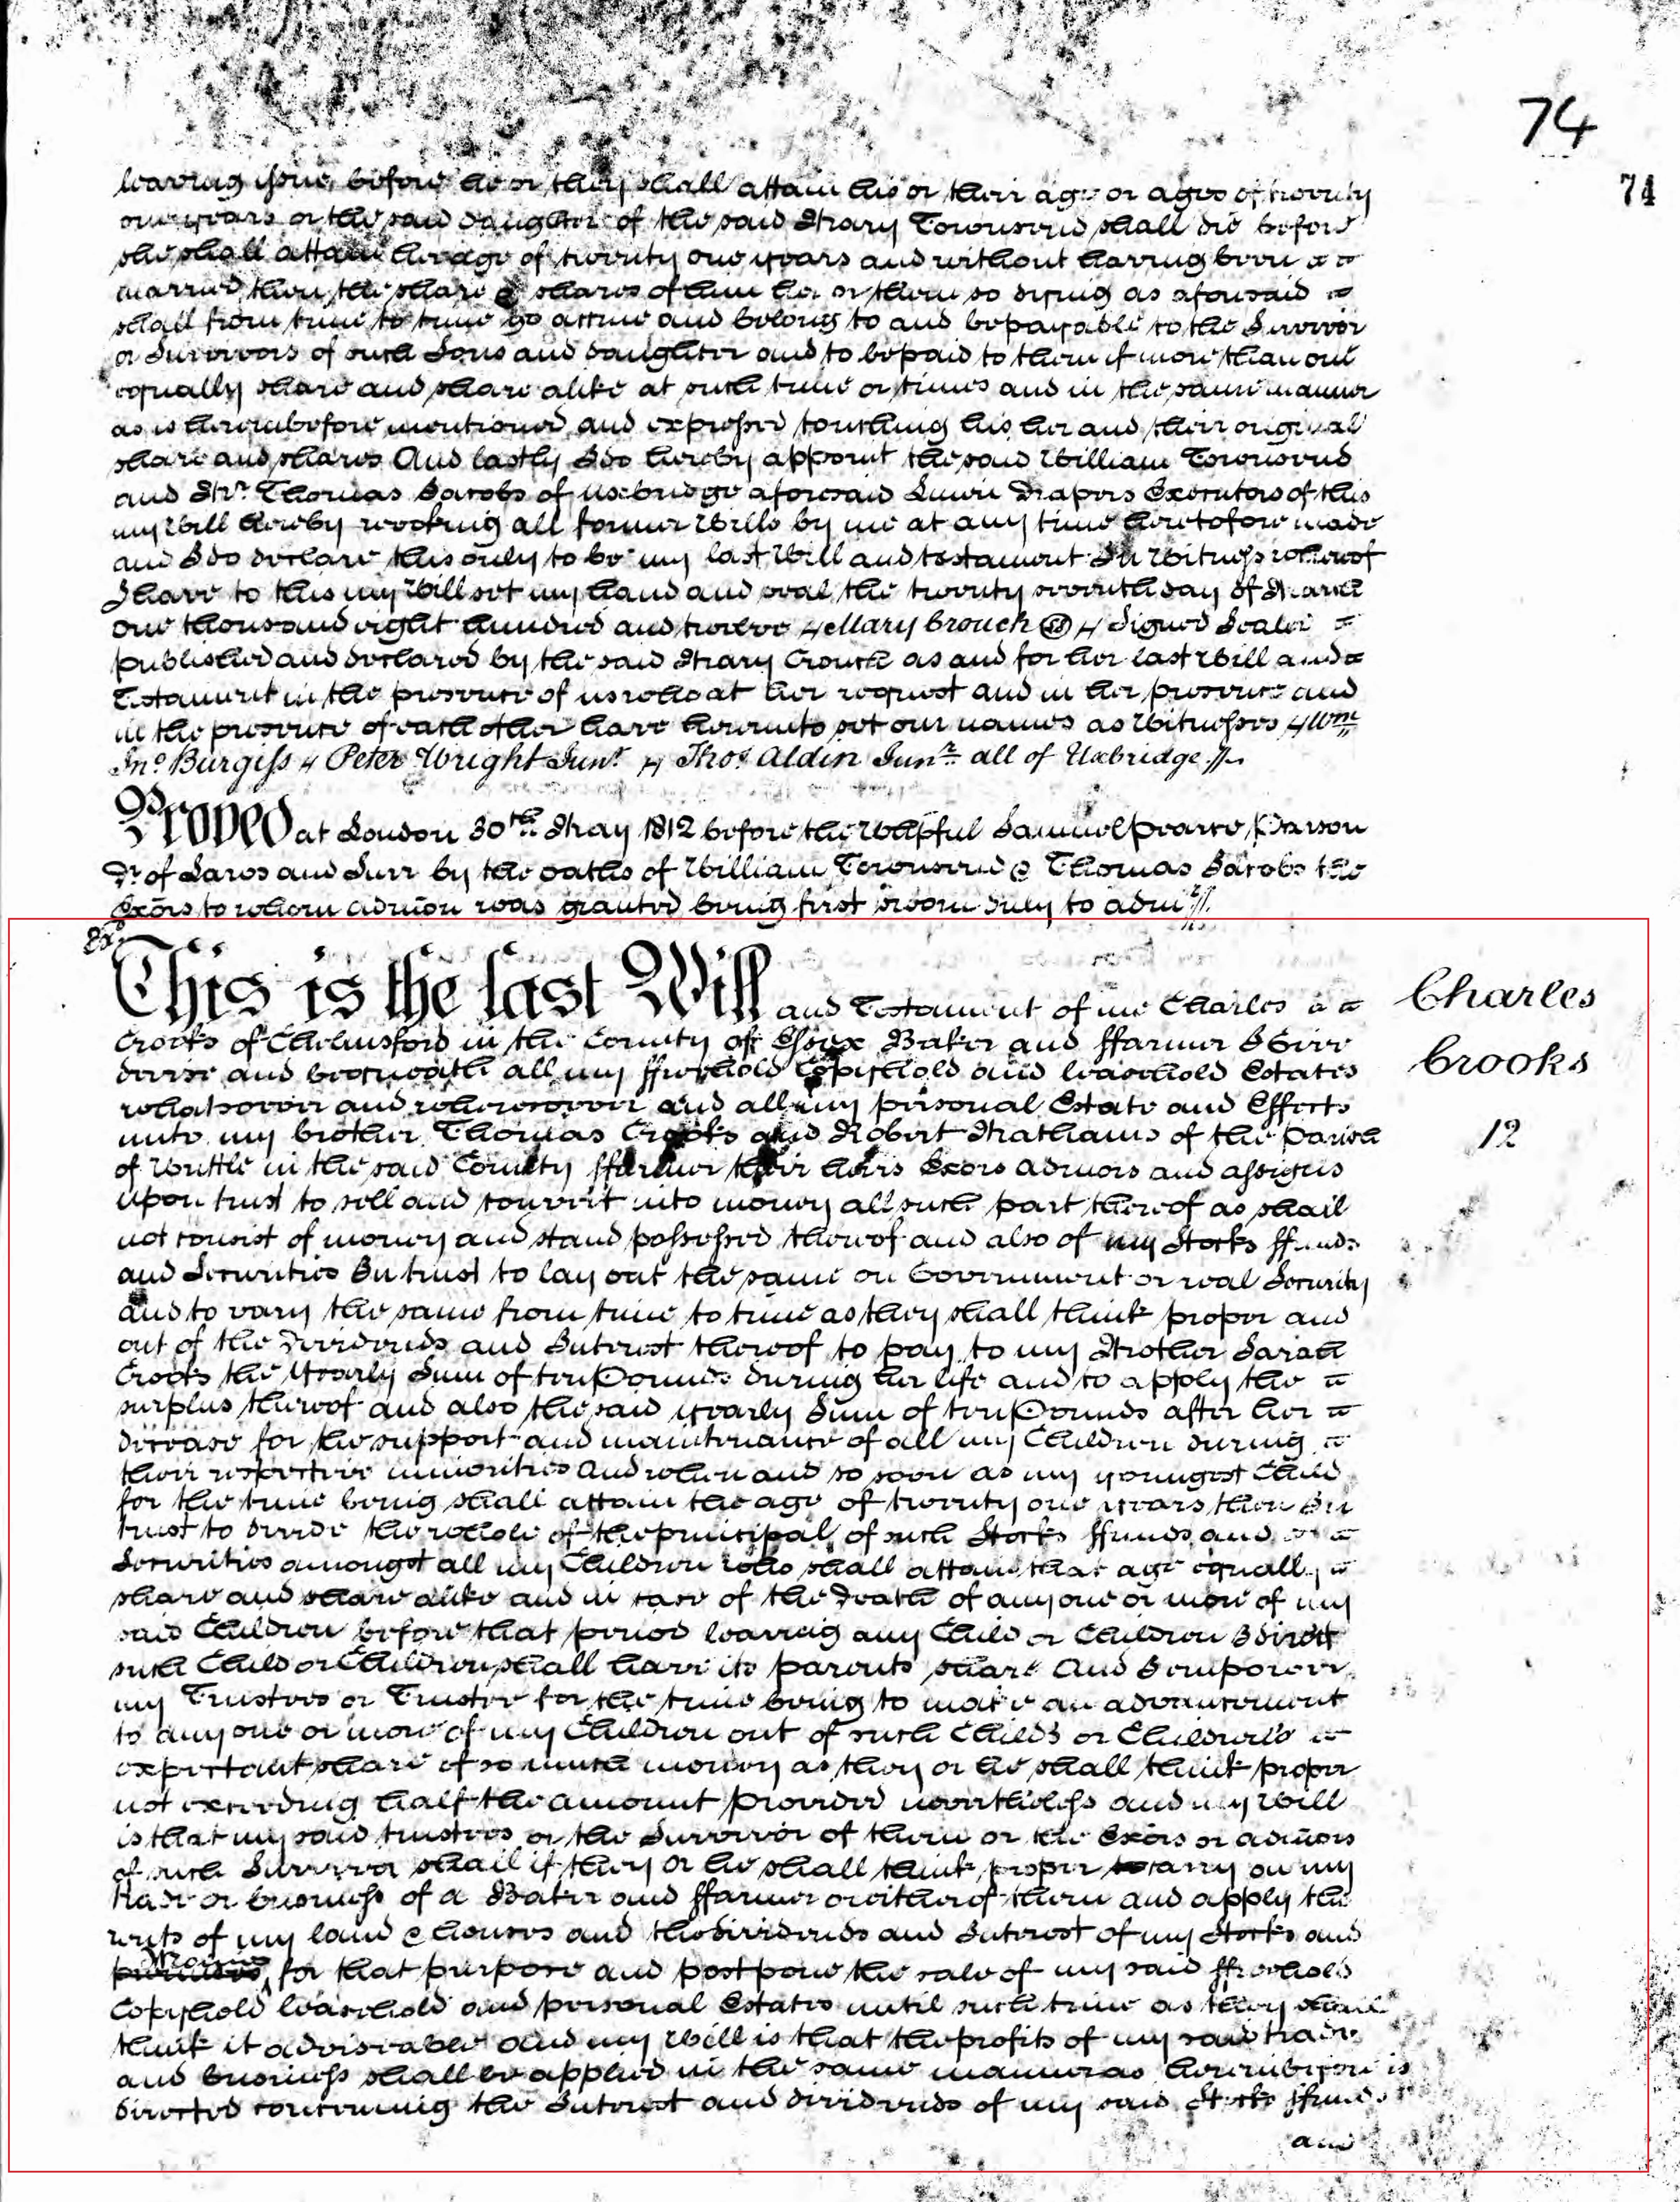 74
74
leaving issue before he or they shall attain his or their age or ages of twenty
one years or the said daughter of the said Mary Townsend shall die before
she shall attain her age of twenty one years and without having been
married then the share & shares of him her or them so dying as aforesaid
shall from time to time go accrue and belong to and be payable to the Survivor
or Survivors of such Sons and daughter and to be paid to them if more than one
equally share and share alike at such time or times and in the same manner
as is hereinbefore mentioned and expressed touching his her and their original
share and shares And lastly I do hereby appoint the said William Townsend
and Mr. Thomas Jacobs of Uxbridge aforesaid Linen Drapers Executors of this
my Will hereby revoking all former Wills by me at any time heretofore made
and I do declare this only to be my last Will and testament In Witness whereof
I have to this my Will set my hand and seal the twenty seventh day of March
one thousand eight hundred and twelve Mary Crouch Signed Sealed
published and declared by the said Mary Crouch as and for her last Will and
Testament in the presence of us who at her request and in her presence and
in the presence of each other have hereunto set our names as Witnesses Wm
Jno. Burgiss Peter Wright Junr. Thos. Aldin Junr. all of Uxbridge
Proved at London 30th. May 1812 before the Worshipful Samuel Pearce Parson
Dr. of Laws and Surr by the oaths of William Townsend & Thomas Jacobs the
Exors to whom admon was granted being first sworn duly to admr.
This is the last Will and Testament of me Charles
Charles
Crooks of Chelmsford in the County of Essex Baker and ffarmer I Give
Crooks
devise and bequeath all my ffreehold Copyhold and leasehold Estates
whatsoever and wheresoever and all my personal Estate and Effects
unto my brother Thomas Crooks and Robert Mathams of the Parish
12
of Writtle in the said County ffarmer their heirs Exors admors and assigns
upon trust to sell and convert into money all such part thereof as shall
not consist of money and stand possessed thereof and also of my Stocks ffunds
and Securities In trust to lay out the same on Government or real Security
and to vary the same from time to time as they shall think proper and
out of the Dividends and Interest thereof to pay to my Mother Sarah
Crooks the Yearly Sum of ten Pounds during her life and to apply the
surplus thereof and also the said yearly Sum of ten Pounds after her
decease for the support and maintenance of all my Children during
their respective minorities And when and so soon as my youngest Child
for the time being shall attain the age of twenty one years then In
trust to divide the whole of the principal of such Stocks ffunds and
Securities amongst all my Children who shall attain that age equally
share and share alike and in case of the Death of any one or more of my
said Children before that period leaving any Child or Children I direct
such Child or Children shall have its parents share And I empower
my Trustees or Trustee for the time being to make an advancement
to any one or more of my Children out of such Child's or Children's
expectant share of so much money as they or he shall think proper
not exceeding half the amount Provided nevertheless and my Will
is that my said trustees or the Survivor of them or the Exors or admors
of such Survivor shall if they or he shall think proper carry on my
trade or business of a Baker and ffarmer or either of them and apply the
rents of my land & houses and the dividends and Interest of my Stocks and
Monies for that purpose and postpone the sale of my said ffreehold
Copyhold leasehold and personal Estates until such time as they shall
think it adviseable and my Will is that the profits of my said trade
and business shall be applied in the same manner as hereinbefore is
directed concerning the Interest and dividends of my said Stocks ffunds
and